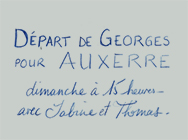 DÉPART DE GEORGES
POUR AUXERRE
dimanche à 15 heures-
avec Sabine et Thomas.